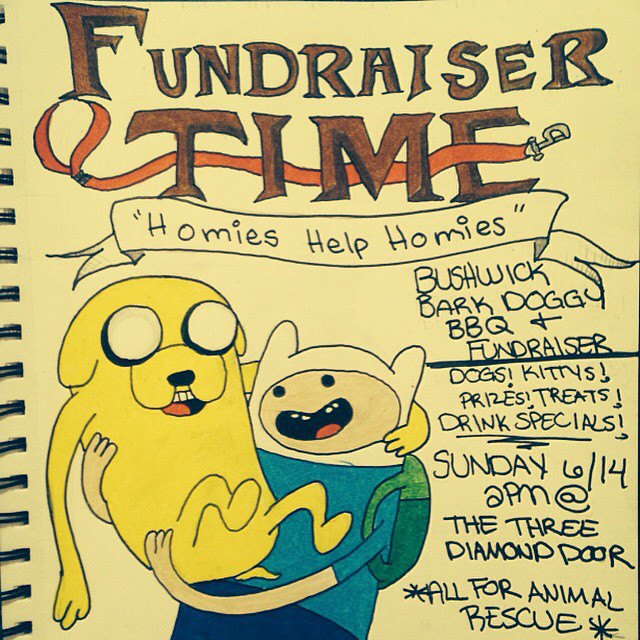 FUNDRAISER
TIME
"Homies Help Homies"
BUSHWICK
BARK DOGGY
BBQ +
FUNDRAISER
DOGS! KITTYS!
PRIZES! TREATS!
DRINK SPECIALS!
SUNDAY 6/14
2PM @
THE THREE
DIAMOND DOOR
*ALL FOR ANIMAL
RESCUE*